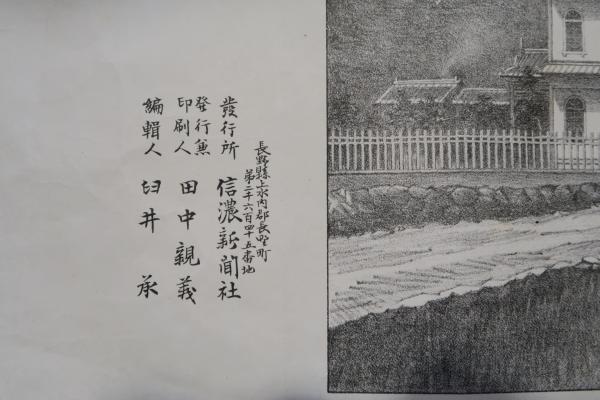 長野縣上水内郡長野町
第二千六百四十五番地
發行所 信濃新聞社
發行兼
印刷人 田中親義
編輯人 臼井承